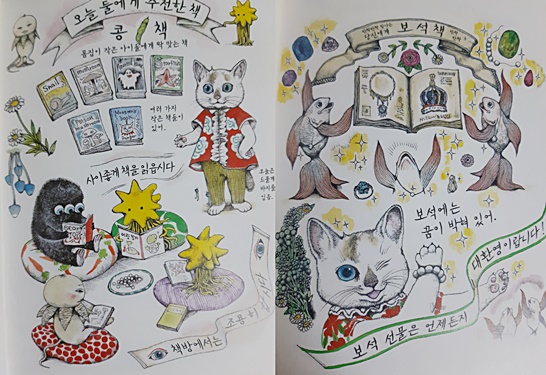 오늘 둘에게 추천한 책
콩 책
몸집이 작은 아이들에게 딱 맞는 책
Snail
여러 가지
작은 책들이
있어.
사이좋게 책을 읽읍시다
오늘은
바지를
입음.
책방에서는
조용히
보석 책
보석에는
꿈이 박혀 있어.
대환영이랍니다!
보석 선물은 언제든지